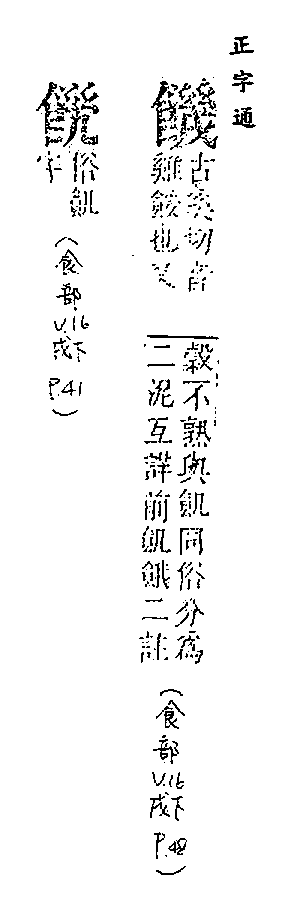 正字通
饑
古奚切音
雞餒也又
穀不熟與飢同俗分為
二泥互詳前飢餓二註
(食部 V.16 戌下 P.48)
俗飢
字
(食部 V.16 戌下 P.41)